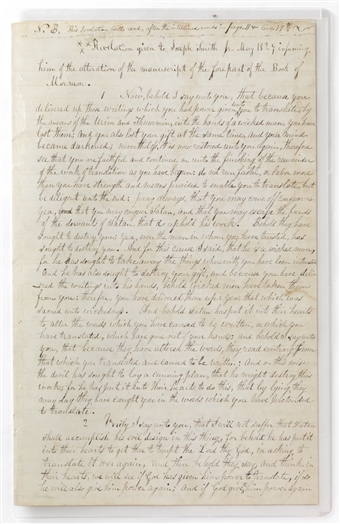 Revelation given to Joseph Smith Jr. May 1829 informing
him of the alteration of the manuscript of the fore part of the Book of
Mormon.
1 Now, behold I say unto you, that because you
delivered up those writings which you had power given unto you to translate, by
the means of the Urim and Thummim, into the hands of a wicked man, you have
lost them; and you also lost your gift at the same time, and your mind
became darkened; nevertheless, it is now restored unto you again, therefore
see that you are faithful and continue on unto the finishing of the remainder
of the work of translation as you have begun: do not run faster, or labor more
than you have strength and means provided to enable you to translate; but
be diligent unto the end: pray always, that you may come off conqueror:
yea, that you may conquer Satan, and that you may escape the hands
of the servants of Satan, that do uphold his work. Behold they have
sought to destroy you; yea, even the man in whom you have trusted, has
sought to destroy you. And for this cause I said, that he is a wicked man,
for he has sought to take away the things wherewith you have been entrusted
And he has also sought to destroy your gift, and because you have deliv-
ered the writings into his hands, behold wicked men have taken them
from you: therefore, you have delivered them up: yea that which was
sacred unto wickedness. And behold, satan has put it into their hearts
to alter the words which you have caused to be written, or which you
have translated, which have gone out of your hands; and behold I say unto
you, that because they have altered the words, they read contrary from
that which you translated and caused to be written; And on this wise
the devil has sought to lay a cunning plan, that he might destroy this
work; for he has put it into their hearts to do this, that by lying they
may say they have caught you in the words which you have pretended
to translate.
2 Verily I say unto you, that I will not suffer that Satan
shall accomplish his evil design in this thing, for behold he has put it
into their hearts to get thee to tempt the Lord thy God, in asking to
translate it over again; And then behold they say and think in
their hearts, we will see if God has given him power to translate, if so,
he will also give him power again; and if God give him power again